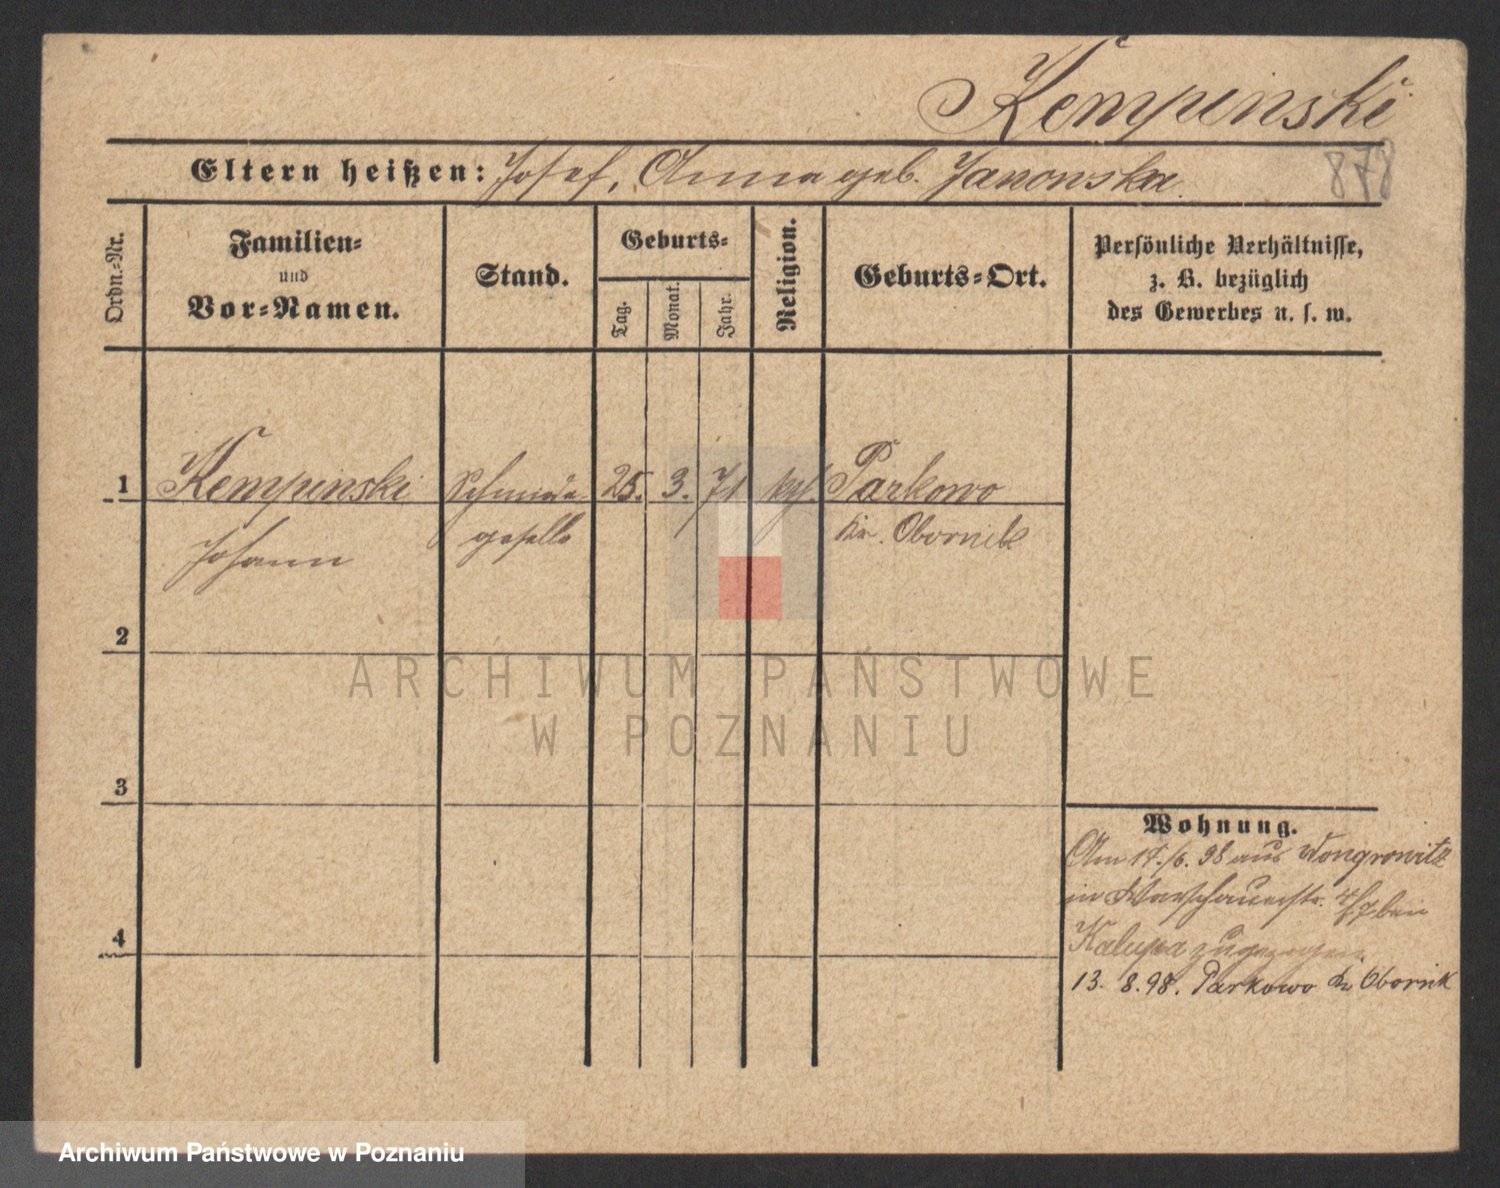 Kempinski
Eltern heißen: Josef, Anna geb. Janowska
878
Ordn.-Nr.
Familien-
und
Vor-Namen.
Stand.
Geburts-
Tag.
Monat.
Jahr.
Religion.
Geburts-Ort.
Persönliche Verhältnisse,
z. B. bezüglich
des Gewerbes u. s. w.
1 Kempinski Schmiede 25. 3. 71 kath. Parkowo
Johann geselle Kr. Obornik
2
3
4
Wohnung.
Am 17./6. 98 aus Wongrowitz
in Warschauerstr. bei
Kalupa zugezogen
13. 8. 98. Parkowo Kr Obornik
ARCHIWUM PAŃSTWOWE
W POZNANIU
Archiwum Państwowe w Poznaniu